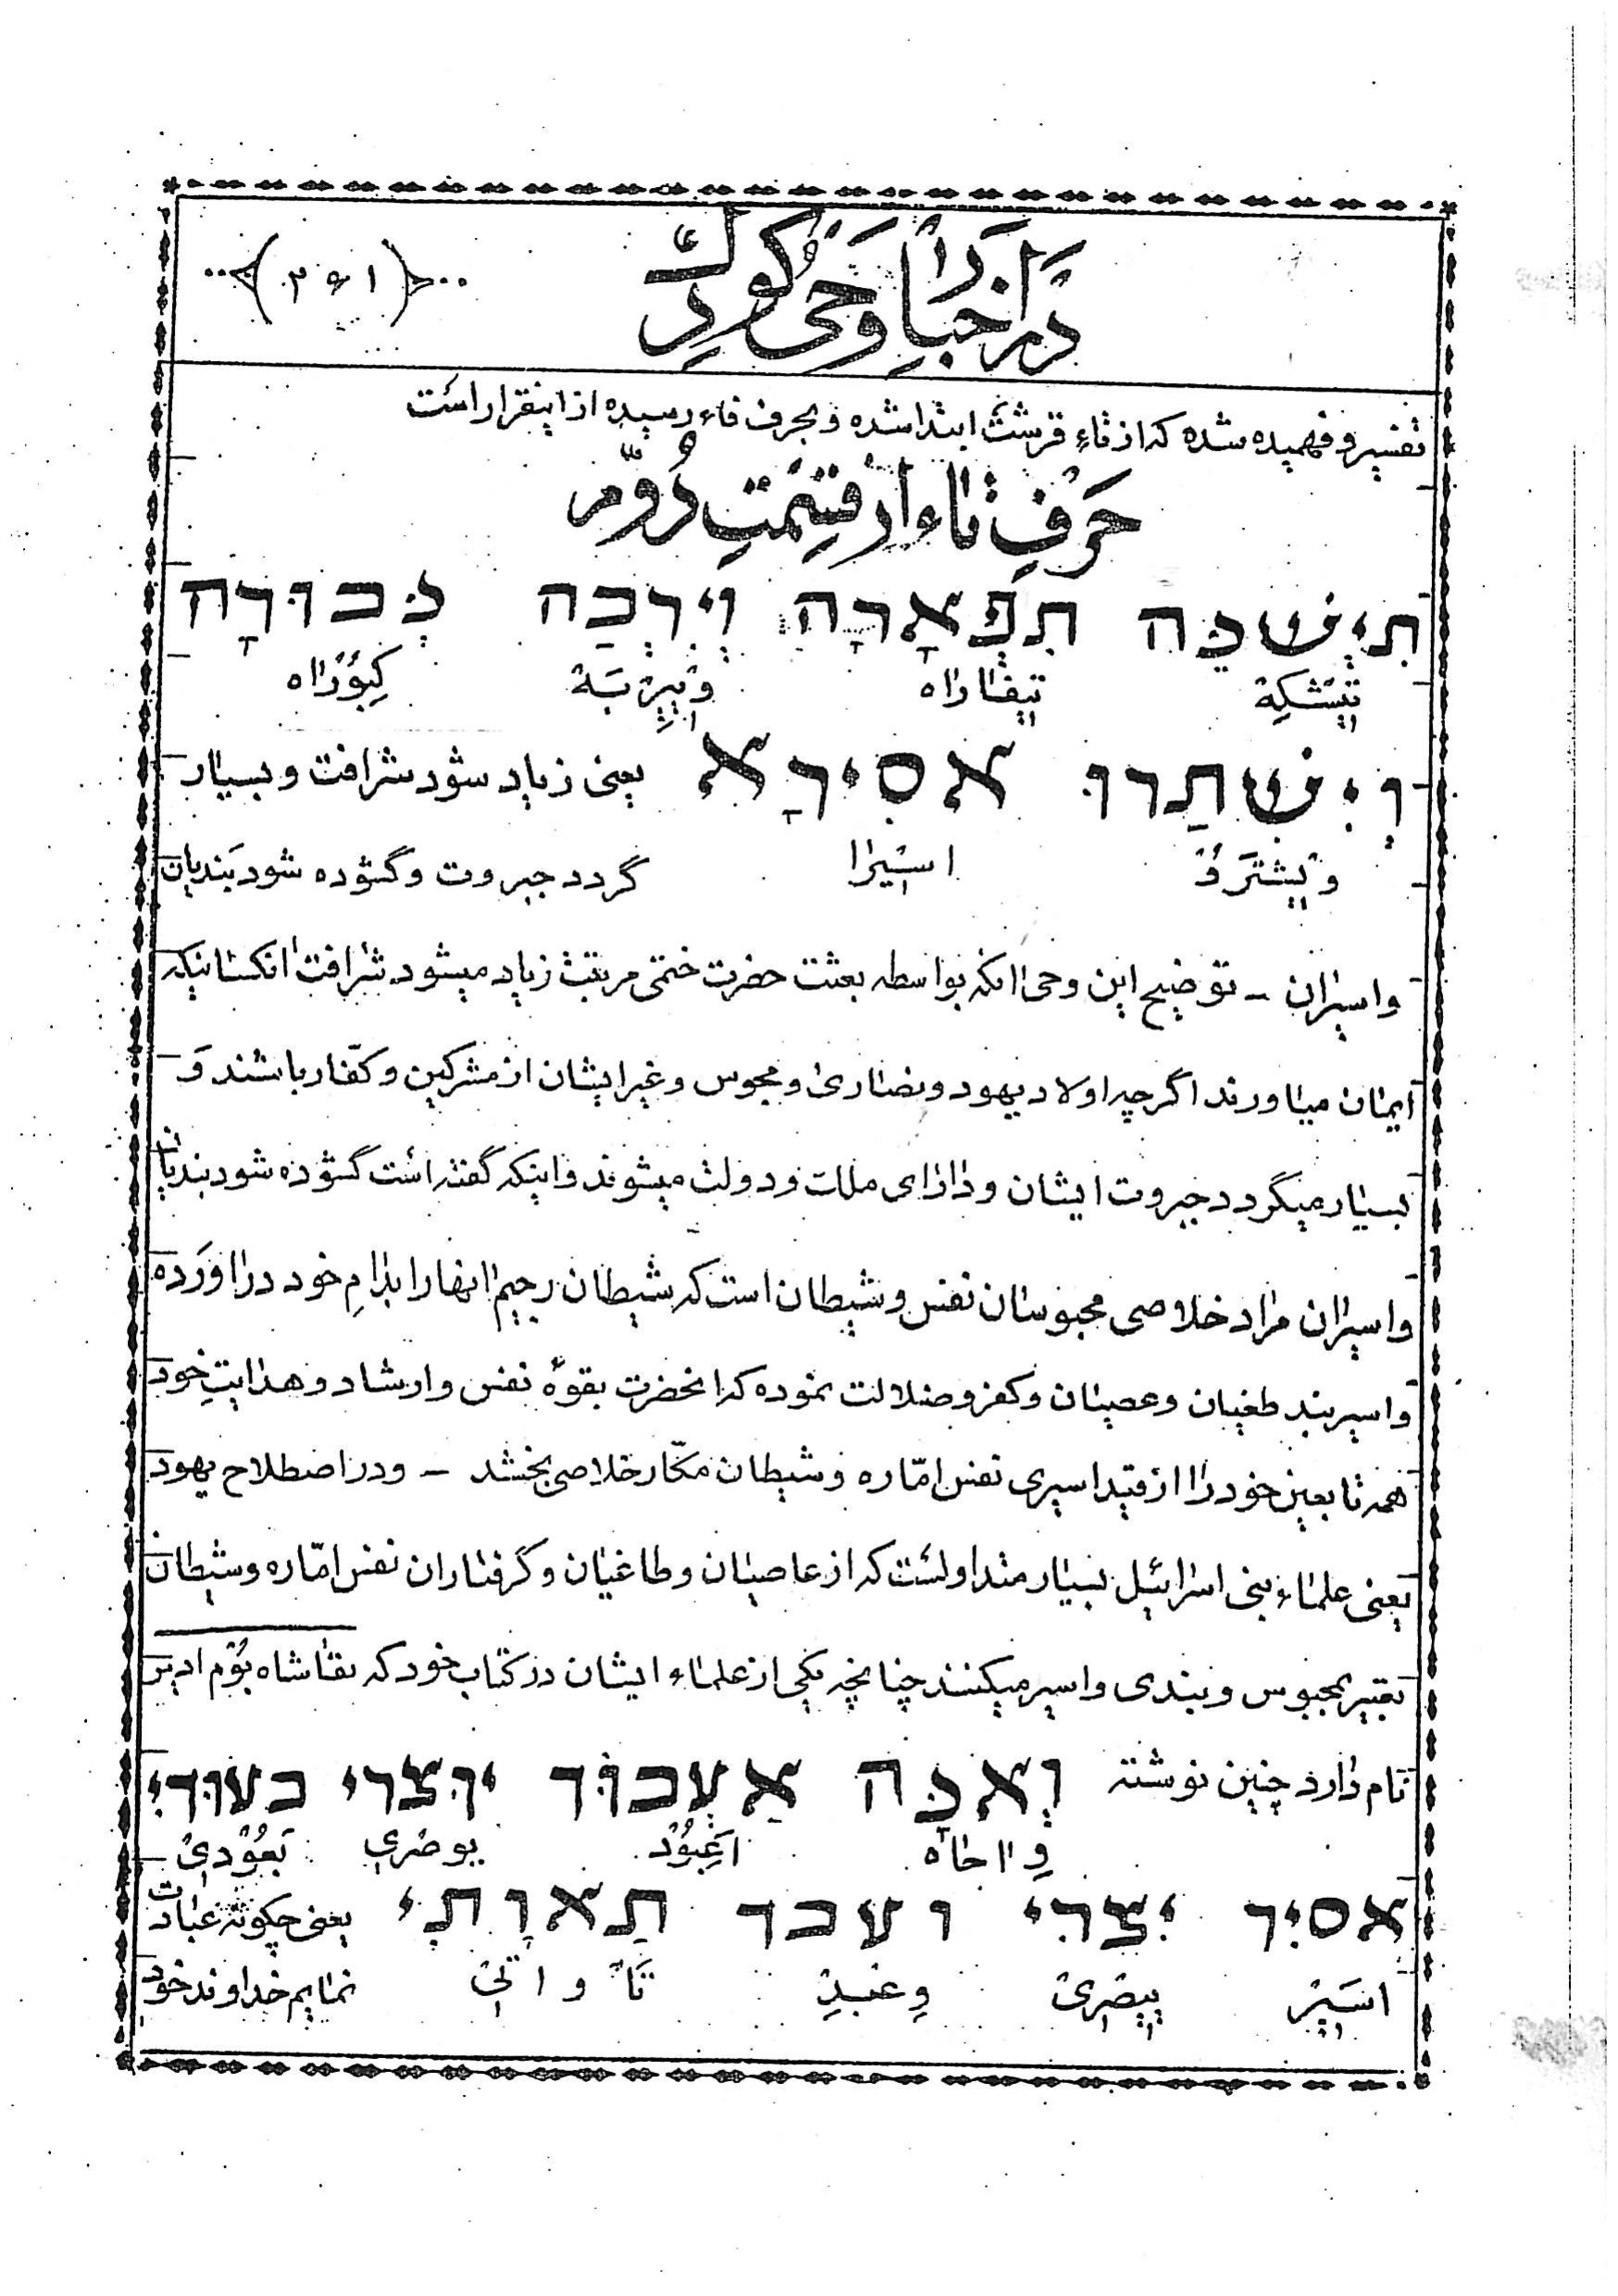 در اخبار از وحی کودک
(۲۶۱)
تفسیر و فهمیده شده که از تاء قرشت ابتدا شده و بحرف فاء رسیده از اینقرار است
حرف تاء از قسمت دوم
תִיְשׂגֵּה תִפְּאָרָה וְיִרְבַּה גְבוּרָה
تییسْگِه تیفاراه وْییرْبَه گِبوُراه
וְיִשְׁתַרוּ אסִירָא یعنی زیاد شود شرافت و بسیار
وْییشترَوُ اسیرا گردد جبروت و گشوده شود بندیان
واسیران – توضیح این وحی آنکه بواسطه بعثت حضرت ختمی مرتبت زیاد میشود شرافت آنکسانیکه
ایمان میاورند اگرچه اولاد یهود و نصاری و مجوس و غیر ایشان از مشرکین و کفّار باشند وَ
بسیار میگردد جبروت ایشان و دارای ملت و دولت میشوند و اینکه گفته است گشوده شود بندیان
واسیران مراد خلاصی محبوسان نفس و شیطان است که شیطان رجیم آنها را بدامِ خود در آوَرده
واسیر بند طغیان و عصیان و کفر و ضلالت نموده که آنحضرت بقوهٔ نفس و ارشاد و هدایتِ خود
همه تابعین خود را از قید اسیری نفس امّاره و شیطان مکّار خلاصی بخشد – و در اصطلاح یهود
یعنی علماء بنی اسرائیل بسیار متداولست که از عاصیان و طاغیان و گرفتاران نفس امّاره و شیطان
تعبیر بمحبوس و بندی و اسیر میکنند چنانچه یکی از علماء ایشان در کتاب خود که
نام دارد چنین نوشته וְאכָּה אַעְבוֹד יוֹצרי בעוּדִי
وِ ااخاه اعِبوُد یوصری بَعوُدی
אסִיר יִצרִי ועבד תַאוָתִי یعنی چگونه عبادت
اسیر ییصری وِ عبدِ تَا واتی نمایم خداوند خود